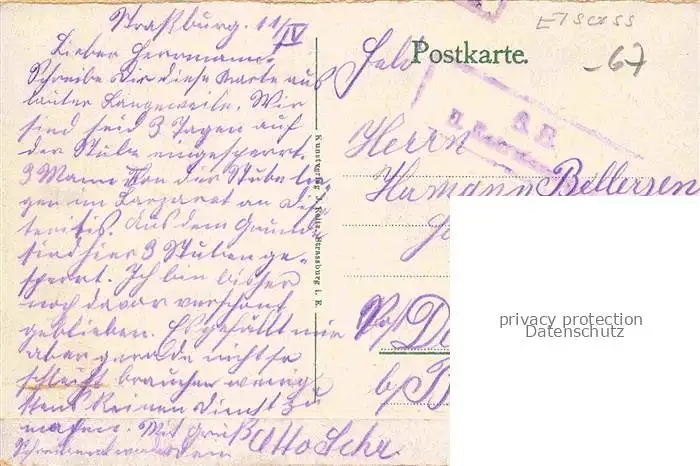 Straßburg. 11/IV
Lieber Herrmann.
Schreibe dir diese Karte aus
lauter Langeweile. Wir
sind seid 3 Tagen auf
der Stube eingesperrt.
3 Mann von der Stube lie-
gen im Lazarat an Dip-
teritis. Aus dem Grunde
sind hier 3 Stuben ge-
sperrt. Ich bin bisher
noch davor verschont
geblieben. Es gefällt mir
aber gerade nicht so
schlecht brauchen wenig-
stens keinen Dienst zu
machen. Mit Gruß Otto Sehr.
Kunstverlag J. Strassburg i. E.
Elsass
-67
Feld Postkarte.
S. B.
Herrn
Hamann Bellersen
b/
privacy protection
Datenschutz